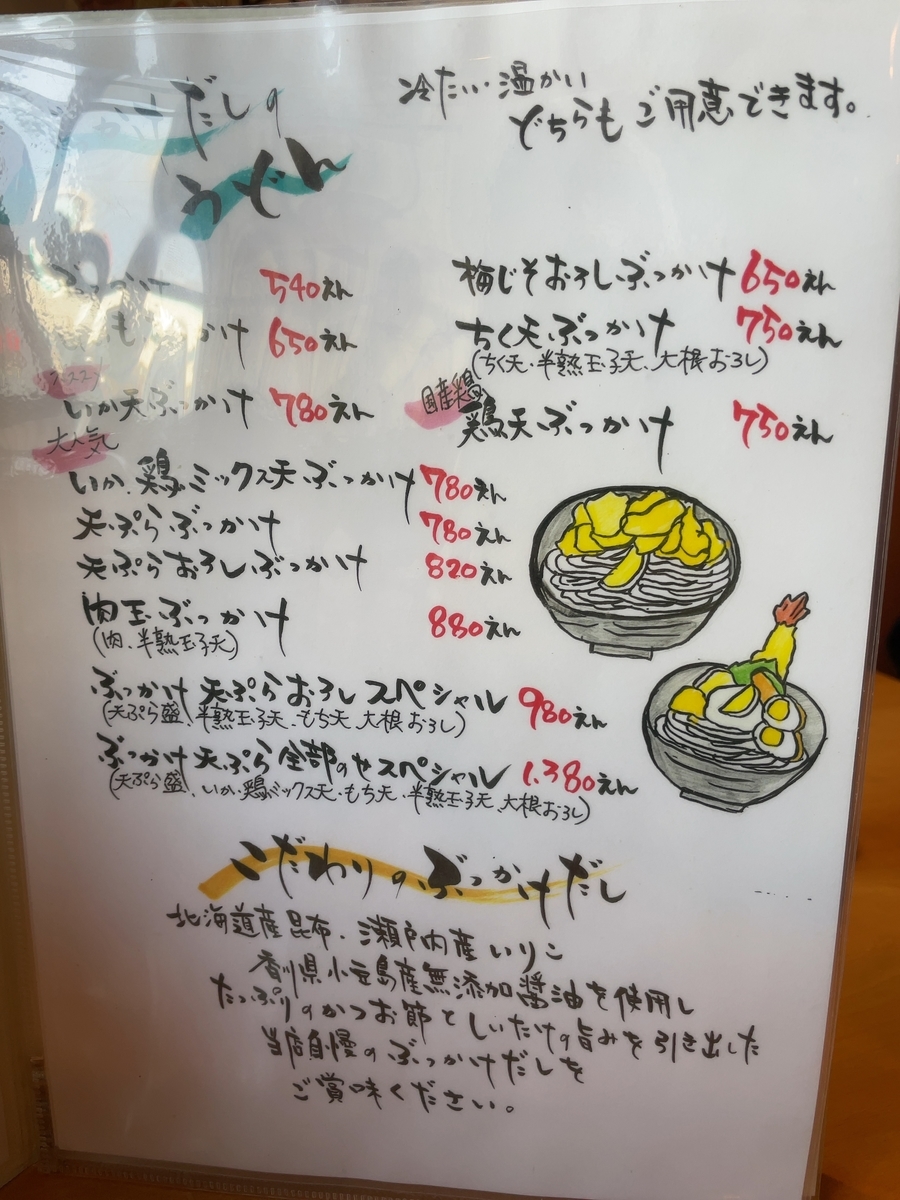 だしの
うどん
冷たい・温かい
どちらもご用意できます。
ぶっかけ 540えん
かけ 650えん
いか天ぶっかけ 780えん
大人気
いか、鶏ミックス天ぶっかけ 780えん
天ぷらぶっかけ 780えん
天ぷらおろしぶっかけ 820えん
肉玉ぶっかけ 880えん
(肉、半熟玉子天)
ぶっかけ 天ぷらおろしスペシャル 980えん
(天ぷら盛、半熟玉子天・もち天、大根おろし)
ぶっかけ 天ぷら全部のせスペシャル 1,380えん
(天ぷら盛、いか・鶏ミックス天・もち天・半熟玉子天、大根おろし)
梅じそおろしぶっかけ 650えん
ちく天ぶっかけ 750えん
(ちく天・半熟玉子天、大根おろし)
国産鶏
鶏天ぶっかけ 750えん
こだわりのぶっかけだし
北海道産昆布・瀬戸内産いりこ
香川県小豆島産無添加醤油を使用し
たっぷりのかつお節としいたけの旨みを引き出した
当店自慢のぶっかけだしを
ご賞味ください。